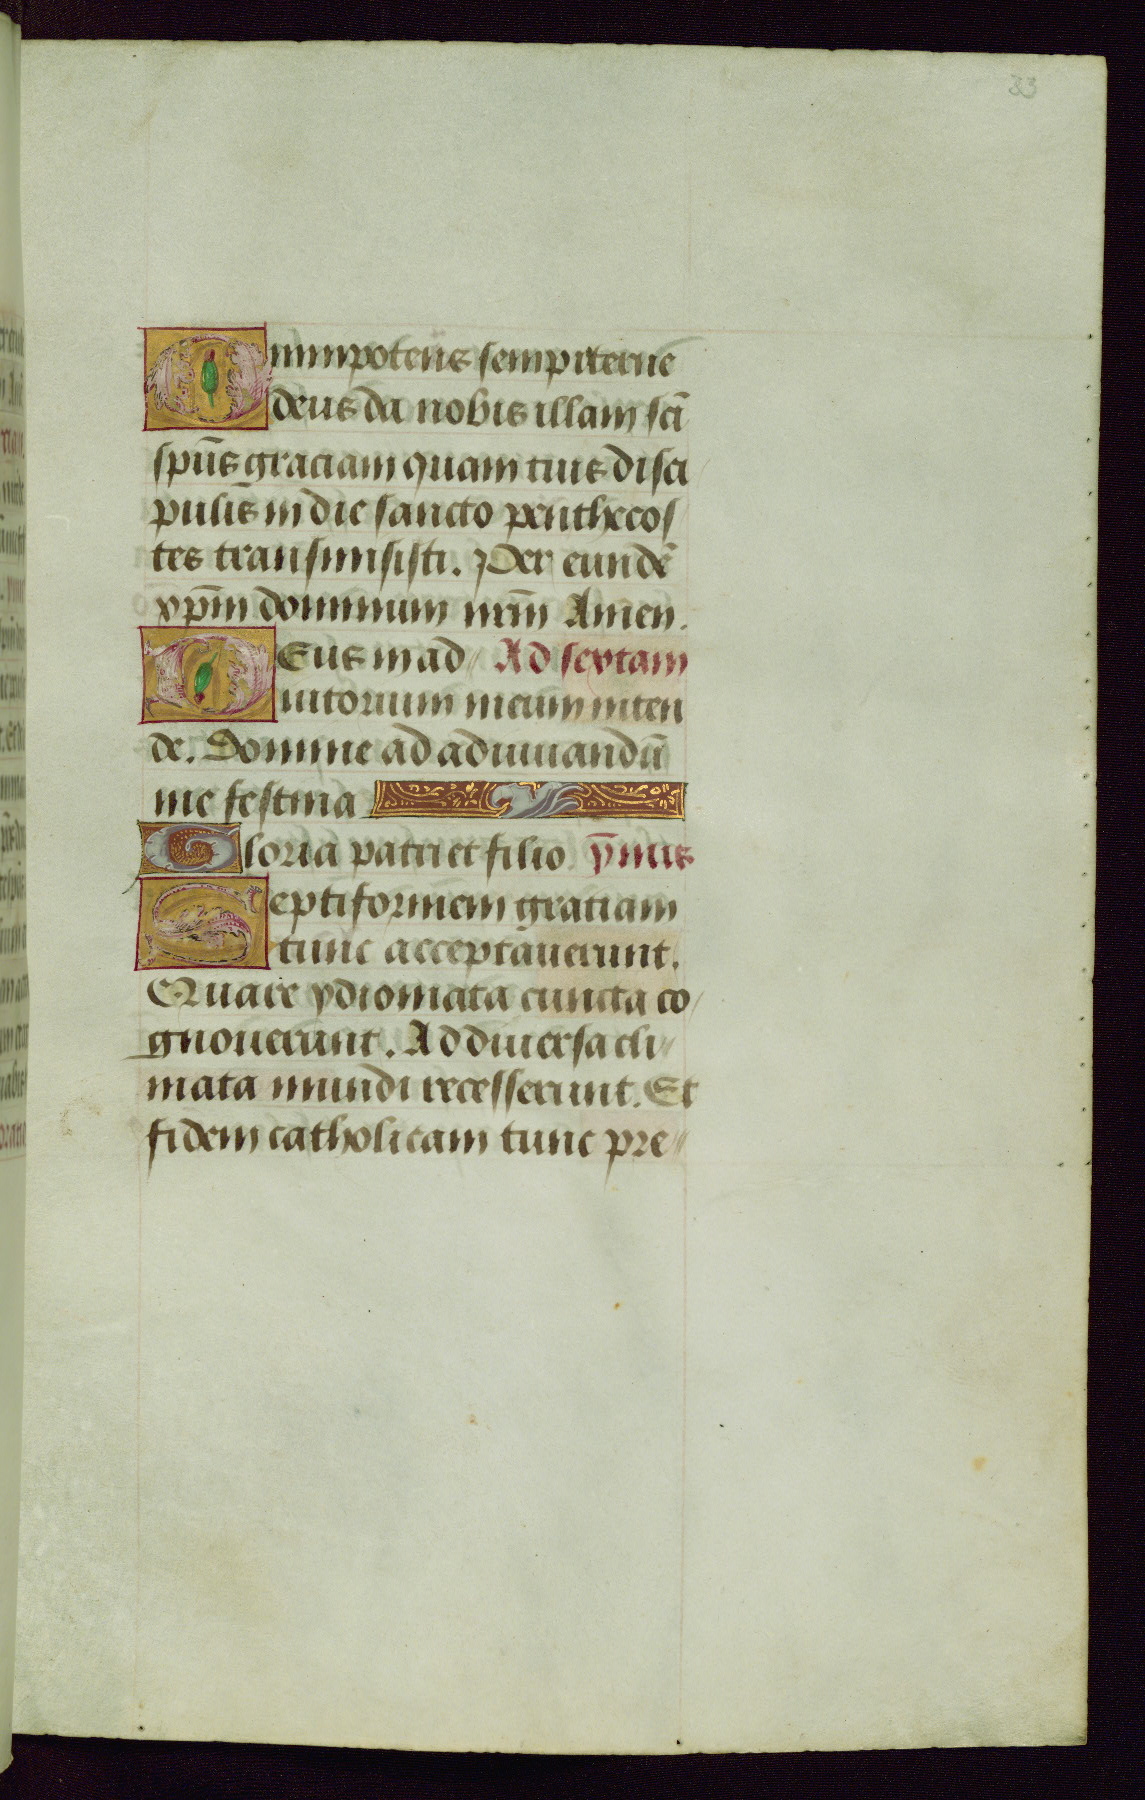 33
Omnipotens sempiterne
deus da nobis illam scī
spūs graciam quam tuis disci
pulis in die sancto penthecos
tes transmisisti. Per eundē
xp̄m dominum nr̄m Amen.
Deus in ad Ad sextam
iutorium meum inten
de. Domine ad adiuuandū
me festina
Gloria patri et filio. ȳmnis
Septiformem gratiam
tunc acceptauerunt.
Quare ydiomata cuncta co
gnouerunt. Ad diuersa cli
mata mundi recesserunt. Et
fidem catholicam tunc pre